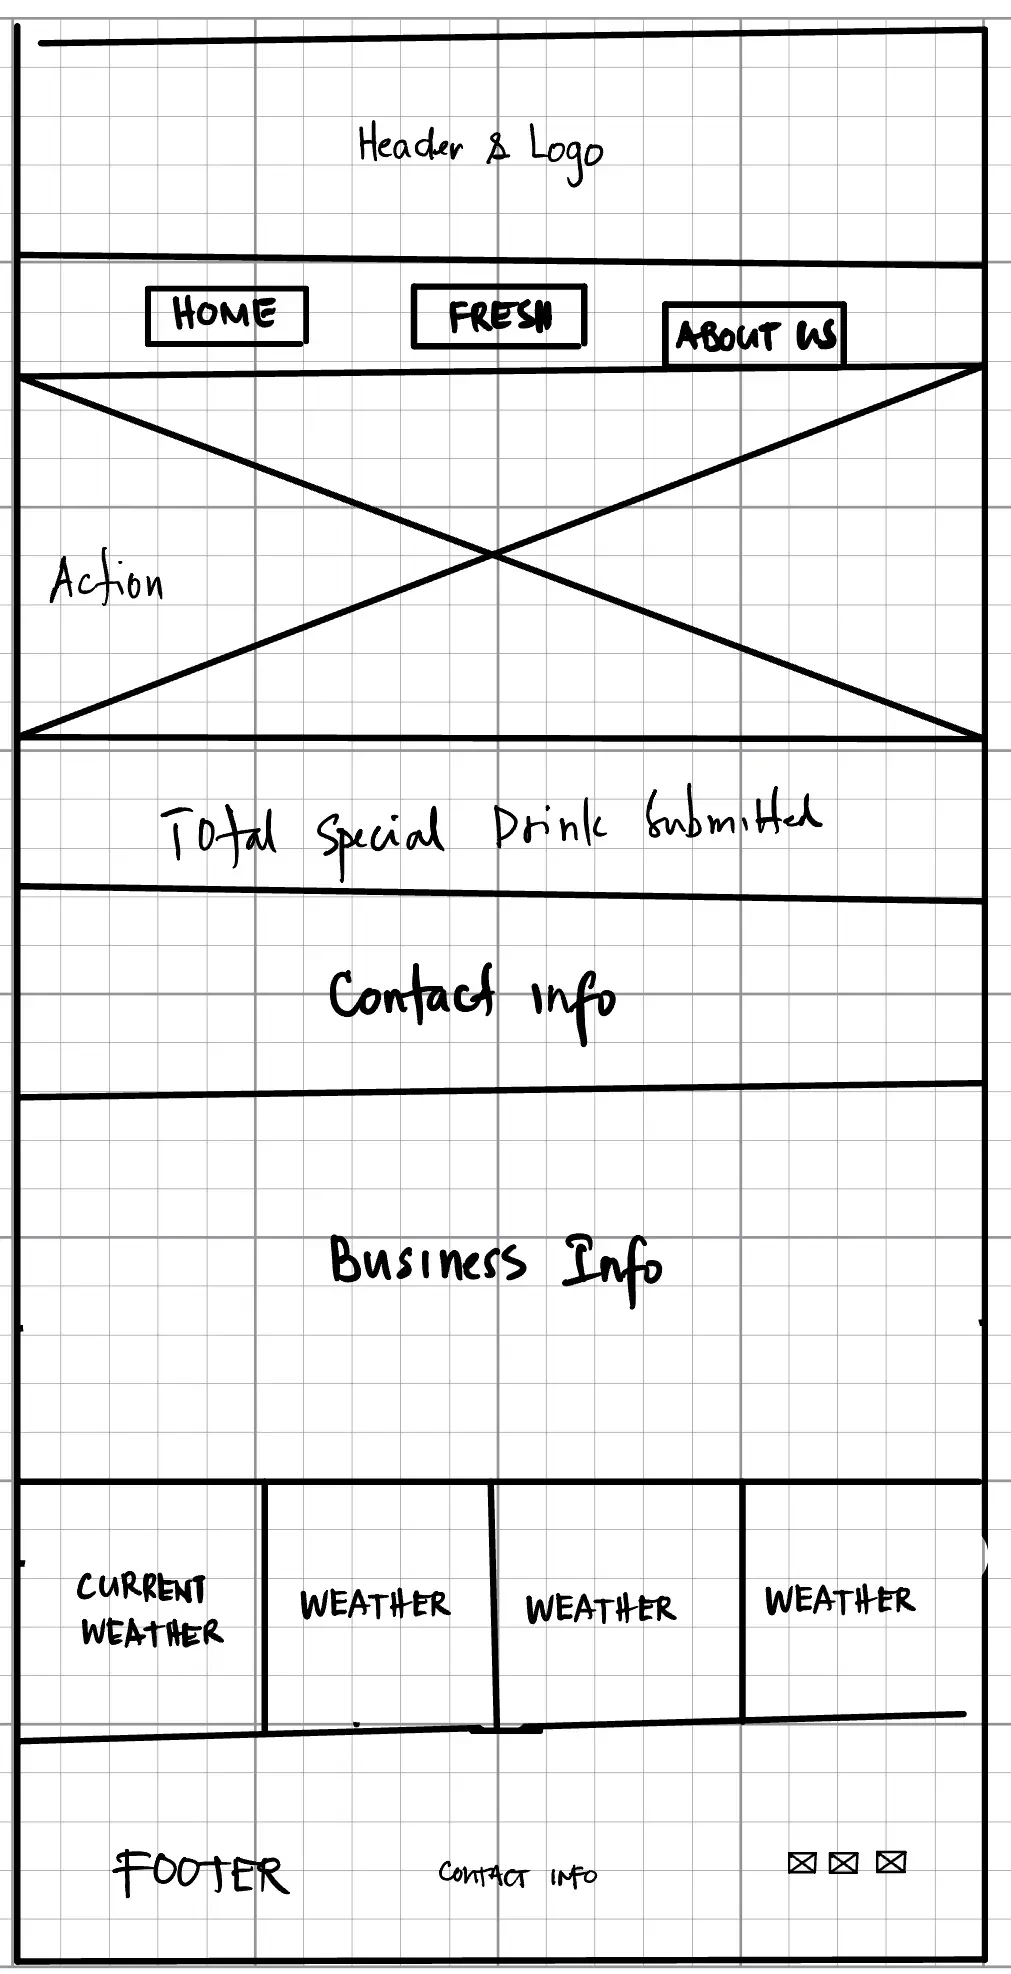 Header & Logo
HOME FRESH ABOUT US
Action
Total Special Drink Submitted
Contact info
Business Info
CURRENT
WEATHER
WEATHER
WEATHER
WEATHER
FOOTER CONTACT INFO